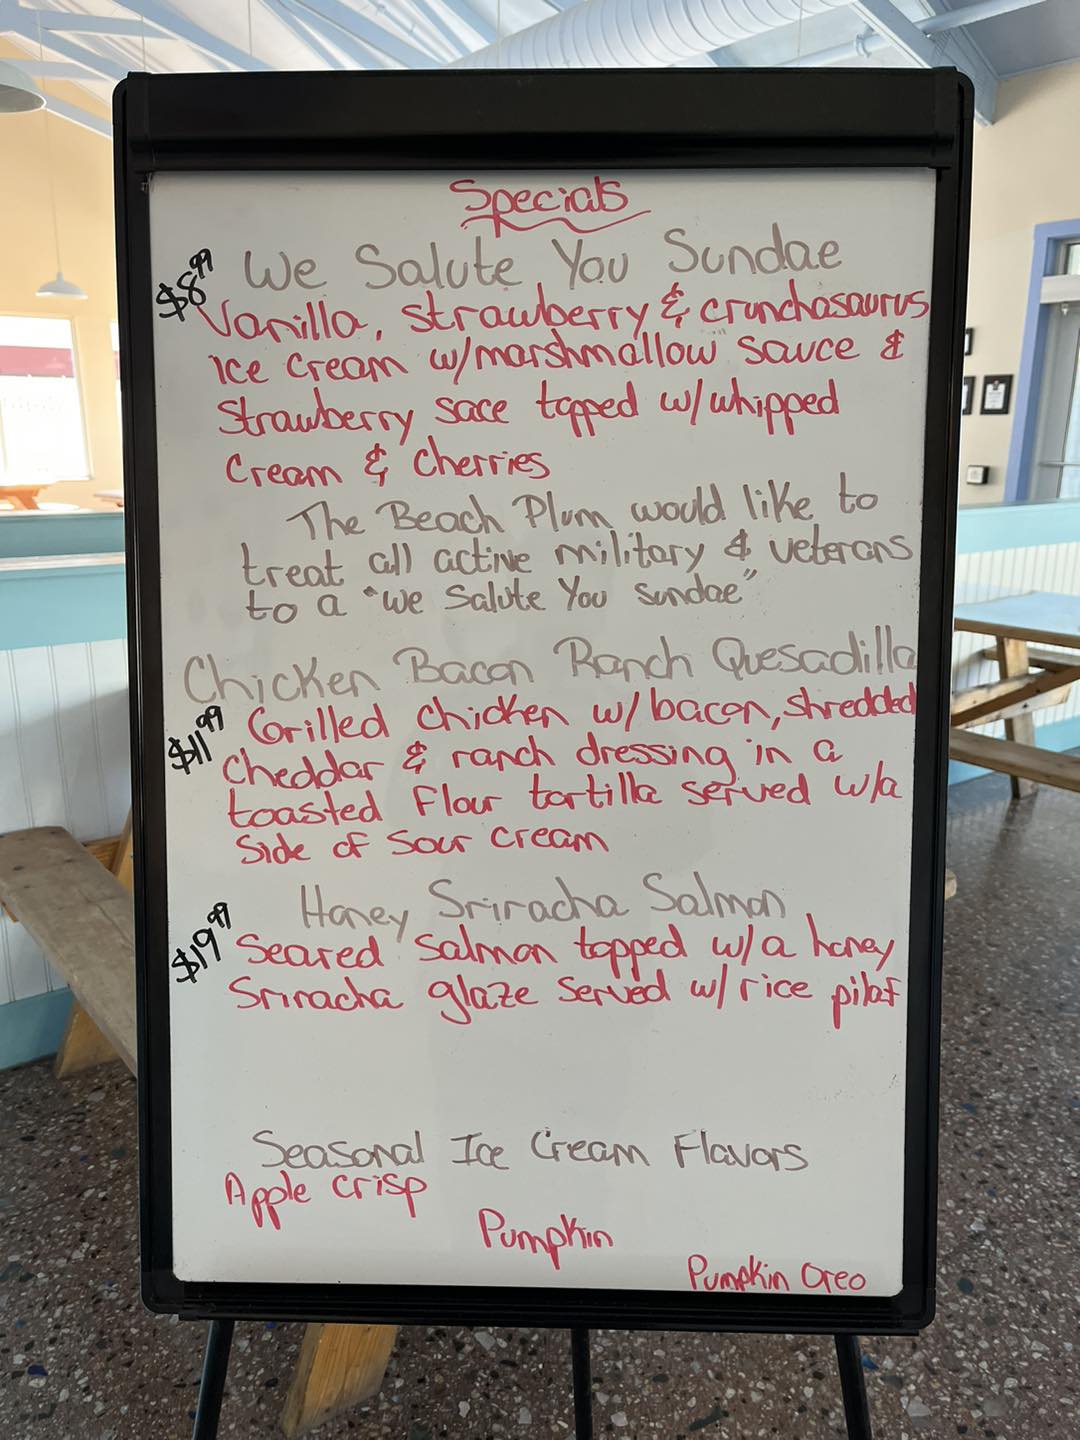 Specials
$8.99 We Salute You Sundae
Vanilla, strawberry & crunchasaurus
ice cream w/marshmallow sauce &
strawberry sace topped w/whipped
cream & cherries
The Beach Plum would like to
treat all active military & veterans
to a "We Salute You Sundae"
Chicken Bacon Ranch Quesadilla
$11.99 Grilled chicken w/bacon, shredded
cheddar & ranch dressing in a
toasted flour tortilla served w/a
side of sour cream
Honey Sriracha Salmon
$19.99 Seared salmon topped w/a honey
Sriracha glaze served w/rice pilaf
Seasonal Ice Cream Flavors
Apple crisp
Pumpkin
Pumpkin Oreo